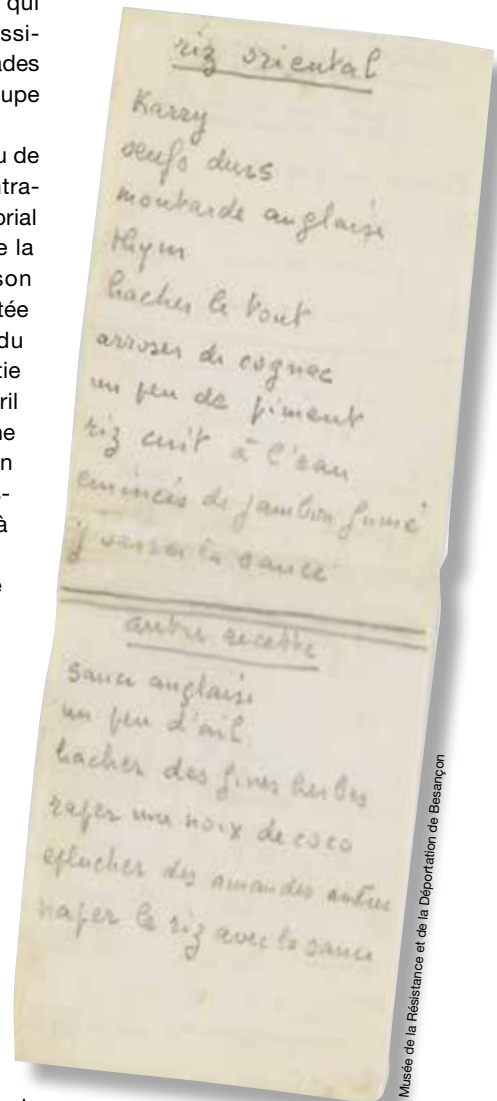 qui
ssi-
ades
upe
u de
ntra-
orial
e la
son
tée
du
tie
ril
ne
n
-
à
e
riz oriental
Karry
oeufs durs
moutarde anglaise
thym
hacher le tout
arroser de cognac
un peu de piment
riz cuit à l'eau
emincés de jambon fumé
verser la sauce
autre recette
sauce anglaise
un peu d'ail
hacher des fines herbes
raper une noix de coco
eplucher des amandes
naper le riz avec la sauce
Musée de la Résistance et de la Déportation de Besançon